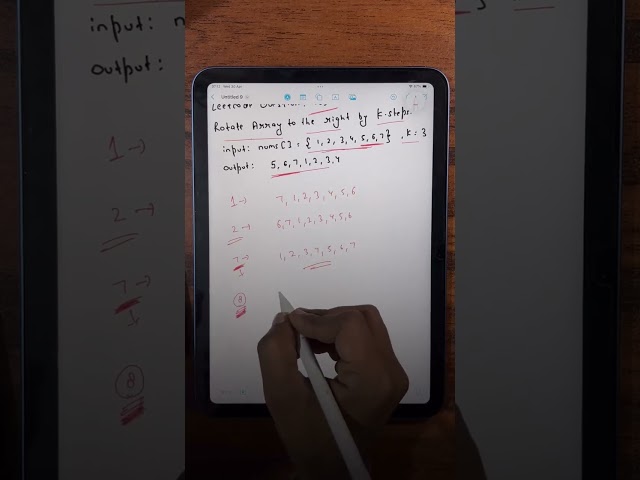 Untitled 9
Rotate Array to the right by K-steps.
input: nums[] = { 1, 2, 3, 4, 5, 6, 7 } , K = 3
output: 5, 6, 7, 1, 2, 3, 4
1 → 7, 1, 2, 3, 4, 5, 6
2 → 6, 7, 1, 2, 3, 4, 5, 6
7 → 1, 2, 3, 7, 5, 6, 7
8